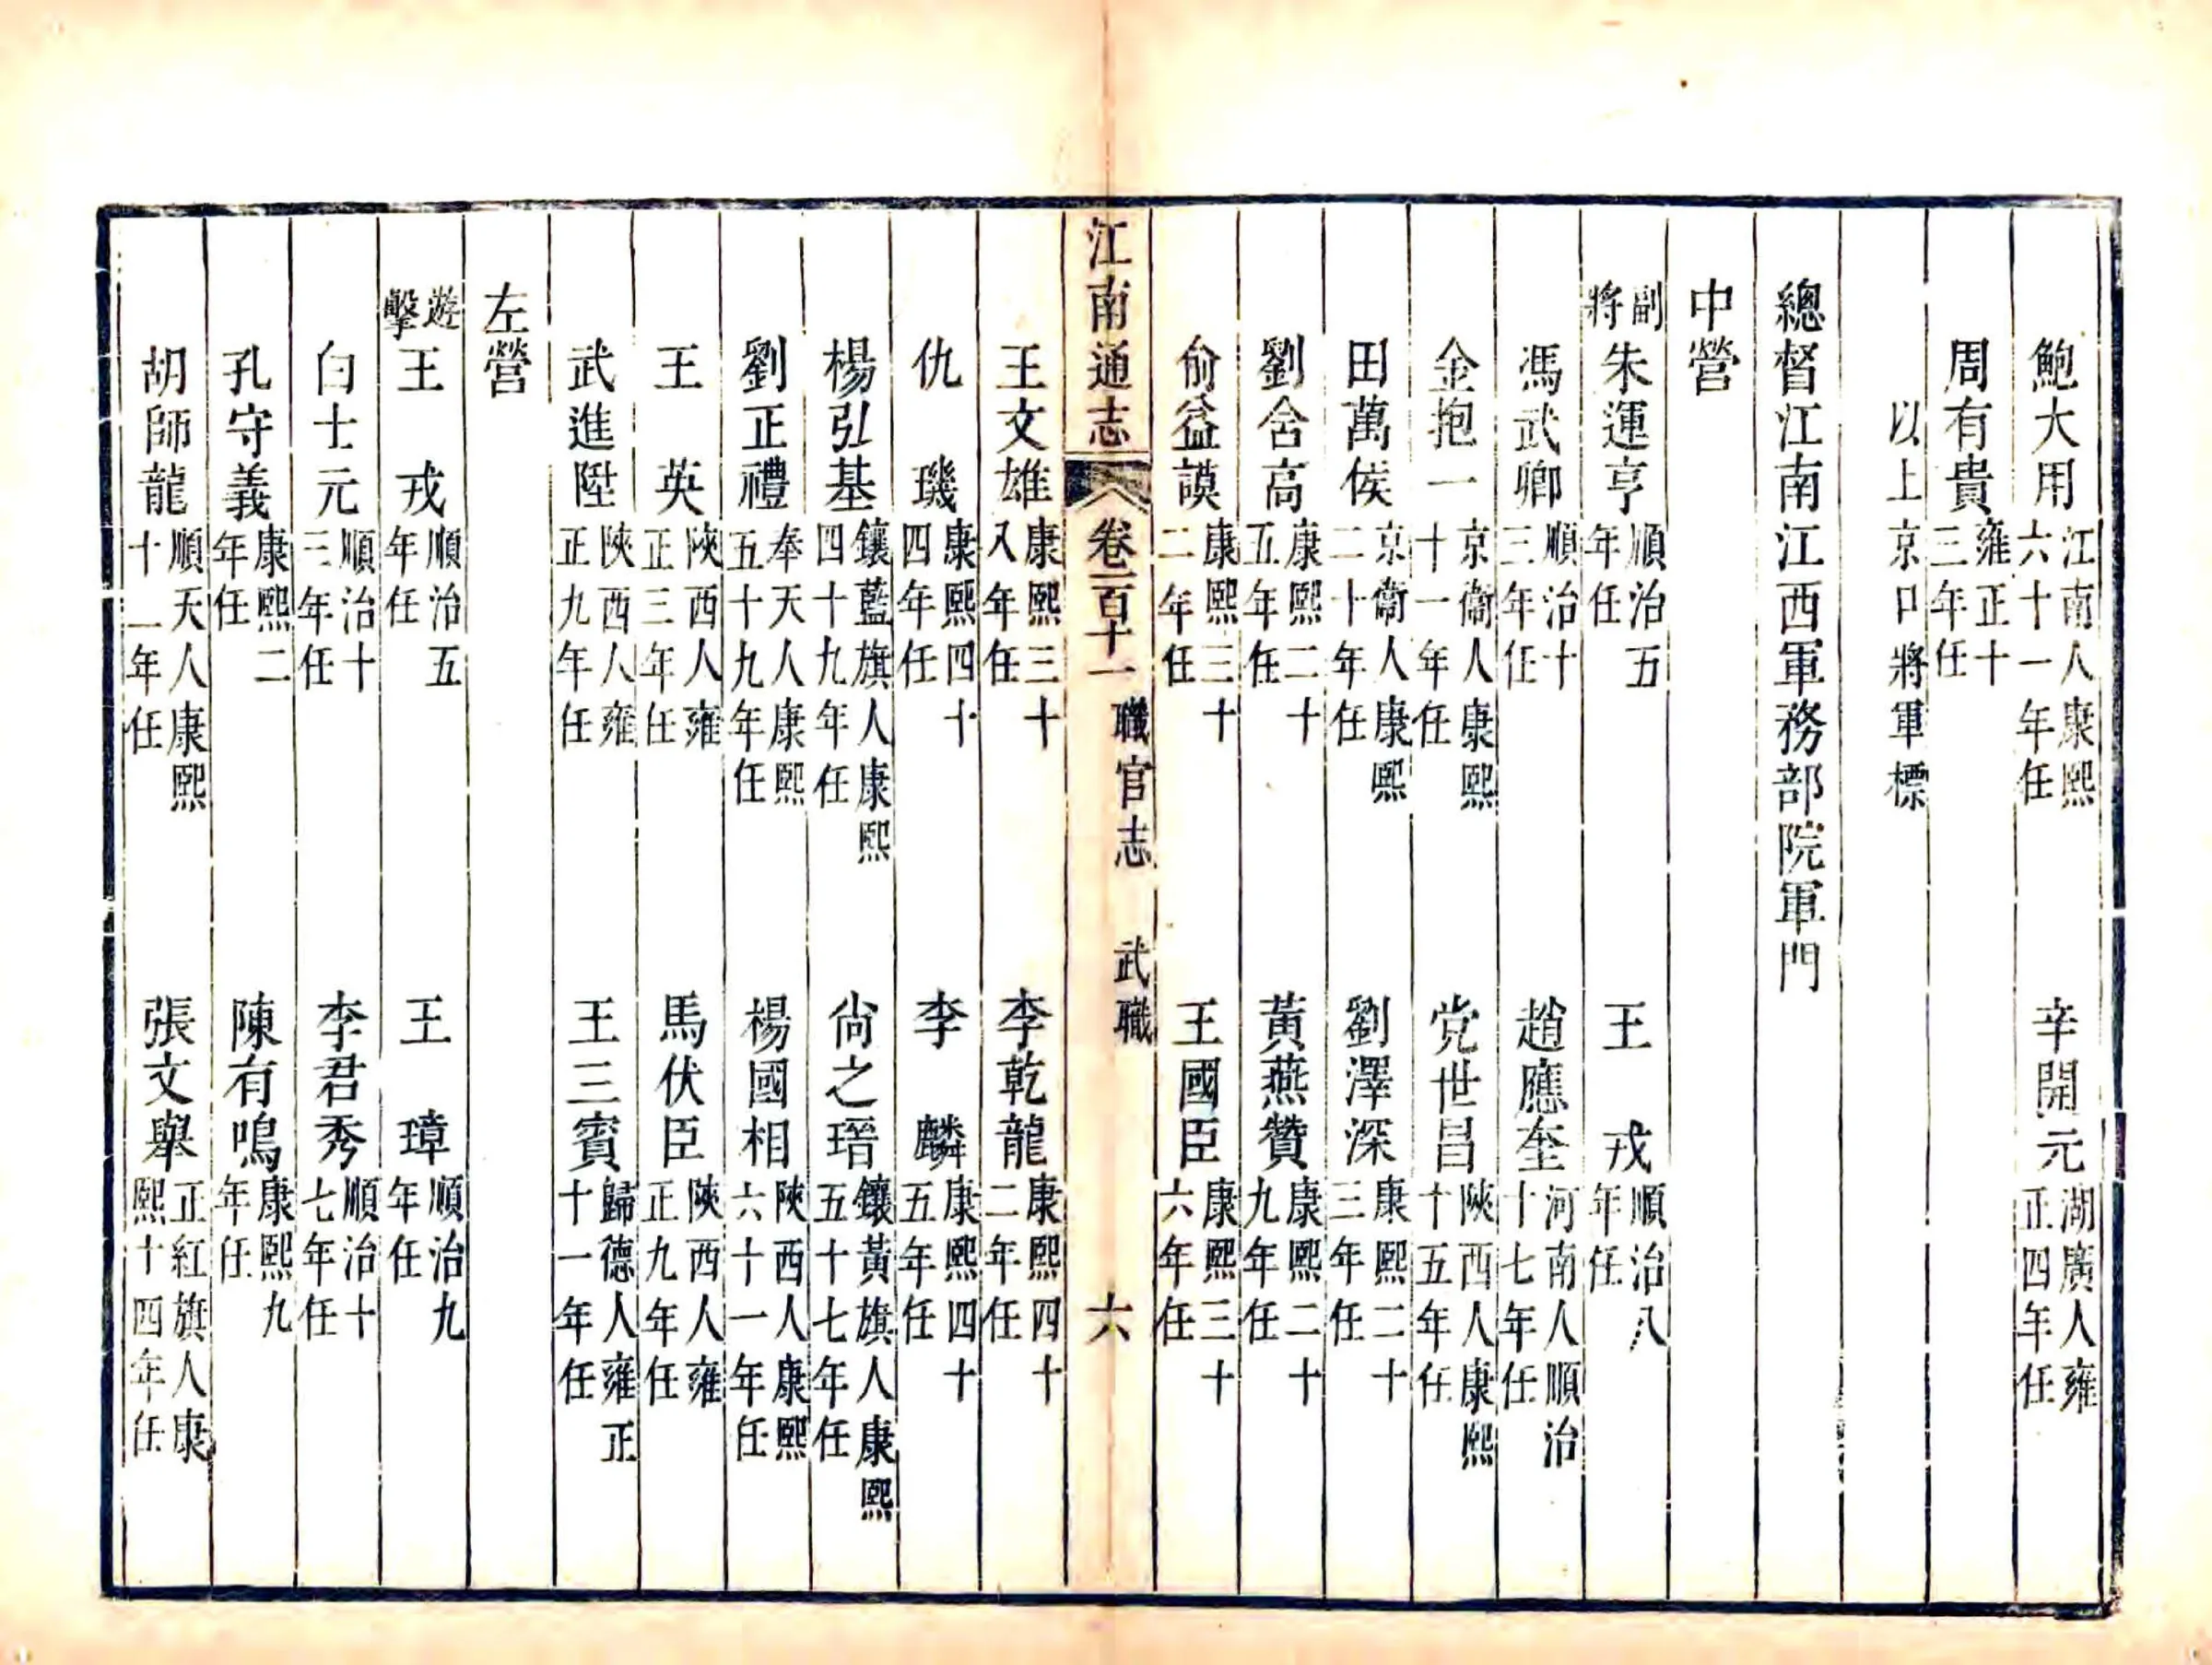 鮑大用江南人康熙六十一年任　辛開元湖廣人雍正四年任
周有貴雍正十三年任
以上京口將軍標
總督江南江西軍務部院軍門
中營
副將朱運亨順治五年任　王戎順治八年任
馮武卿順治十三年任　趙應奎河南人順治十七年任
金抱一京衞人康熙十一年任　党世昌陝西人康熙十五年任
田萬侯京衞人康熙二十年任　劉澤深康熙二十三年任
劉含高康熙二十五年任　黃燕贊康熙二十九年任
俞益謨康熙三十二年任　王國臣康熙三十六年任
江南通志　卷一百十一　職官志　武職　六
王文雄康熙三十八年任　李乾龍康熙四十二年任
仇璣康熙四十四年任　李麟康熙四十五年任
楊弘基鑲藍旗人康熙四十九年任　尙之瑨鑲黃旗人康熙五十七年任
劉正禮奉天人康熙五十九年任　楊國相陝西人康熙六十一年任
王英陝西人雍正三年任　馬伏臣陝西人雍正九年任
武進陞陝西人雍正九年任　王三賓歸德人雍正十一年任
左營
遊擊王戎順治五年任　王璋順治九年任
白士元順治十三年任　李君秀順治十七年任
孔守義康熙二年任　陳有鳴康熙九年任
胡師龍順天人康熙十二年任　張文舉正紅旗人康熙十四年任